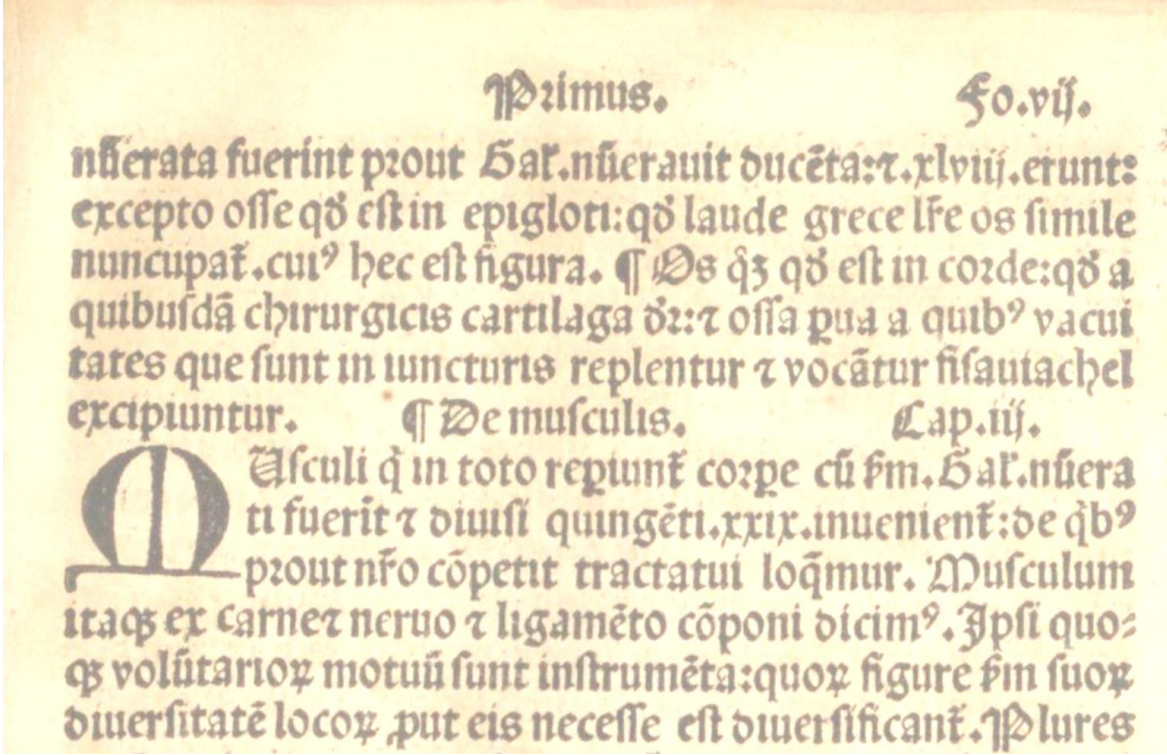 Primus. Fo.vij.
nũerata fuerint prout Gal̃.nũerauit ducẽta:⁊.xlviij.erunt:
excepto osse qđ est in epigloti:qđ laude grece lr̃e os simile
nuncupat̃.cuiꝰ hec est figura. ¶ Os q̃ꝫ qđ est in corde:qđ a
quibusdã chirurgicis cartilaga dr̃:⁊ ossa ꝑua a quibꝰ vacui
tates que sunt in iuncturis replentur ⁊ vocãtur fisauiachel
excipiuntur. ¶ De musculis. Cap.iij.
MUsculi q̇ in toto reꝑiunt̃ corꝑe cũ ẜm.Gal̃.nũera
ti fuerĩt ⁊ diuisi quingẽti.xxix.inuenient̃:de q̇bꝰ
prout nr̃o cõpetit tractatui loq̃mur. Musculum
itaqꝫ ex carne⁊ neruo ⁊ ligamẽto cõponi dicimꝰ. Ipsi quo⸗
qꝫ volũtarioꝝ motuũ sunt instrumẽta:quoꝝ figure ẜm suoꝝ
diuersitatẽ locoꝝ ꝓut eis necesse est diuersificant̃. Plures